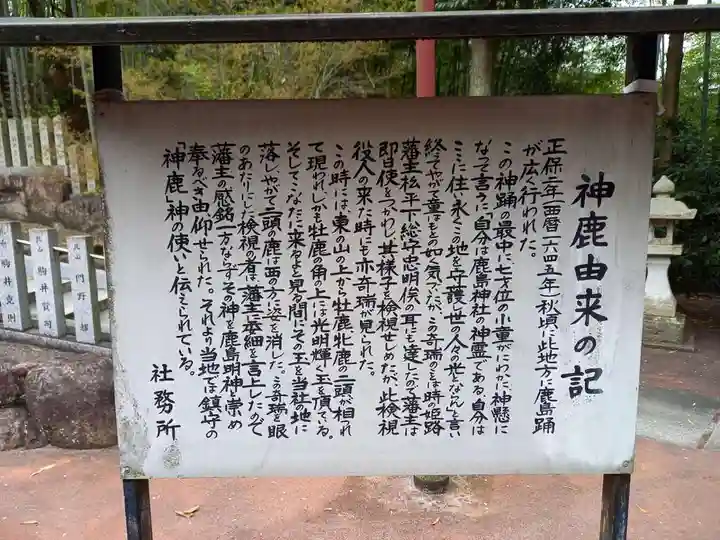 神鹿由来の記
正保二年(西暦一六四五年)秋頃に此地方に鹿島踊
が広く行われた。
この神踊の最中に七才位の小童がにわかに神懸に
なって言うに「自分は鹿島神社の神霊である、自分は
ここに住し永くこの地を守護し世の人々の光となんと言い
終えてやがて童はもとの如く気でたが、この奇瑞のことは時の姫路
藩主松平下総守忠明侯の耳にも達したので藩主は
即日使をつかわし其様子を検視せしめたが、此検視
役人の来た時にも亦奇瑞が見られた。
この時には、東の山の上から牡鹿牝鹿の二頭が相つれ
て現われしかも牡鹿の角の上には光明輝く玉を頂ている。
そしてこなたに来るよと見る間にその玉を当社の地に
落しやがて二頭の鹿は西の方に姿を消した。この奇瑞を眼
のあたりにした検視の者は藩主に委細を言上したので
藩主の感銘一方ならずその神を鹿島明神と崇め
奉るべき由仰せられた。それより当地では鎮守の
「神鹿」神の使いと伝えられている。
社務所
駒井
門野